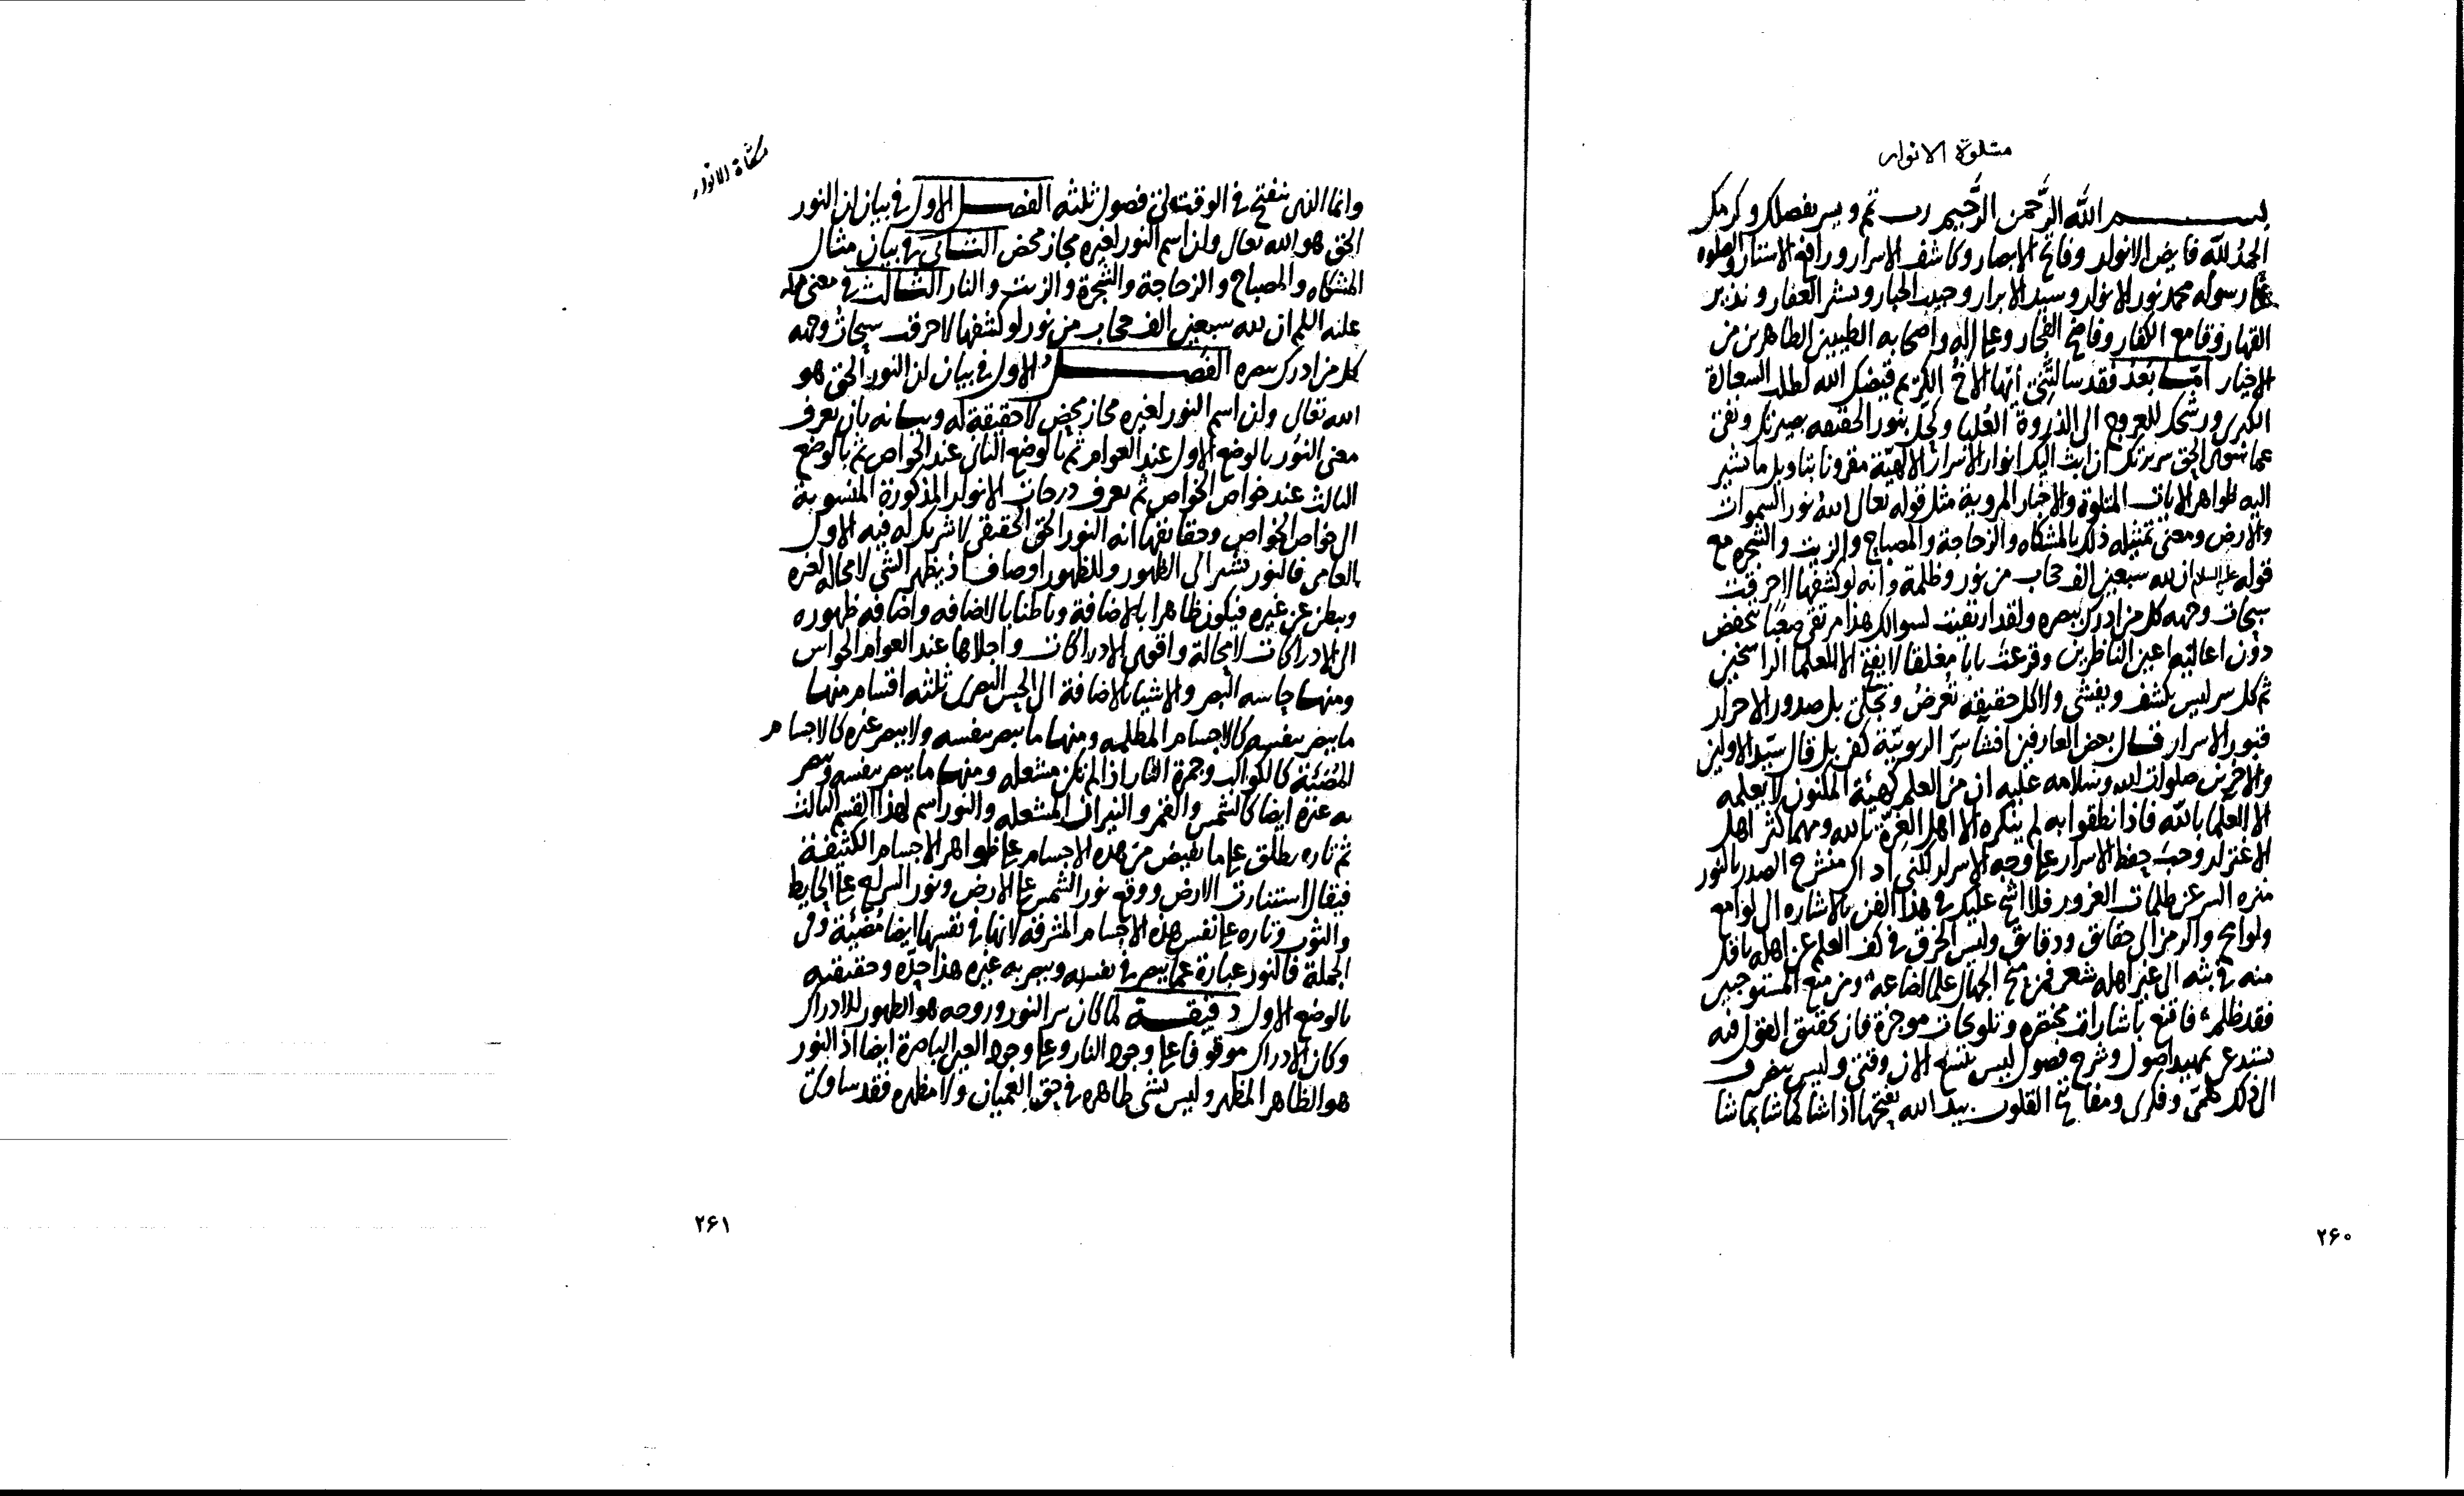 مشكوة الانوار
بسم الله الرحمن الرحيم رب تمم ويسر بفضلك وكرمك
الحمد لله فايض الانوار وفاتح الابصار وكاشف الاسرار ورافع الاستار والصلوه
على رسوله محمد نور الانوار وسيد الابرار وحبيب الجبار وبشير الغفار ونذير
القهار وقامع الكفار وفاضح الفجار وعلى اله واصحابه الطيبين الطاهرين من
الاخيار اما بعد فقد سالتني ايها الاخ الكريم قيضك الله لطلب السعادة
الكبرى ورشحك للعروج الى الذروة العليا وكحل بنور الحقيقه بصيرتك ونقى
عما سوى الحق سريرتك ان ابث اليك انوار الاسرار الالهية مقرونا بتاويل ما يشير
اليه ظواهر الايات المتلوة والاخبار المروية مثل قوله تعالى الله نور السموات
والارض ومعنى تمثيله ذلك بالمشكاه والزجاجة والمصباح والزيت والشجره مع
قوله عليه السلام ان لله سبعين الف حجاب من نور وظلمة وانه لو كشفها لاحرقت
سبحات وجهه كل من ادرك ببصره ولقد ارتقيت لسوالك هذا مرتقى صعبا تنخفض
دون اعاليه اعين الناظرين وقرعت بابا مغلقا لا يفتح الا للعلما الراسخين
ثم كل سر ليس يكشف ويفشى ولا كل حقيقه تعرض وتجلى بل صدور الاحرار
قبور الاسرار قال بعض العارفين افشا سر الربوبية كفر بل قال سيد الاولين
والاخرين صلوات الله وسلامه عليه ان من العلم كهيئة المكنون لا يعلمه
الا العلما بالله فاذا نطقوا به لم ينكره الا اهل الغرة بالله ومهما كثر اهل
الاغترار وجب حفظ الاسرار على وجه الاسرار لكني اراك منشرح الصدر بالنور
منزه السر عن ظلمات الغرور فلا اشح عليك في هذا الفن بالاشاره الى لوامع
ولوايح والرمز الى حقايق ودقايق وليس الخرق في كف العلم عن اهله باقل
منه في بثه الى غير اهله شعر فمن منح الجهال علما اضاعه ومن منع المستوجبين
فقد ظلم فاقنع باشارات مختصره وتلويحات موجزة فان تحقيق القول فيه
يستدعي تمهيد اصول وشرح فصول ليس يتسع الان وقتي وليس ينصرف
الى ذلك همي وفكري ومفاتيح القلوب بيد الله يفتحها اذا شا كما شا بما شا
٢٦٠
مشكاة الانوار
وانما الذي ينفتح في الوقت لي فصول ثلثه الفصل الاول في بيان ان النور
الحق هو الله تعالى وان اسم النور لغيره مجاز محض الثاني في بيان مثال
المشكاه والمصباح والزجاجة والشجرة والزيت والنار الثالث في معنى قوله
عليه السلم ان لله سبعين الف حجاب من نور لو كشفها لاحرقت سبحات وجهه
كل من ادرك بصره الفصل الاول في بيان ان النور الحق هو
الله تعالى وان اسم النور لغيره مجاز محض لا حقيقة له وبيانه بان تعرف
معنى النور بالوضع الاول عند العوام ثم بالوضع الثاني عند الخواص ثم بالوضع
الثالث عند خواص الخواص ثم تعرف درجات الانوار المذكورة المنسوبة
الى خواص الخواص وحقايقها انه النور الحق الحقيقي لا شريك له فيه الاول
العامي فالنور يشير الى الظهور وللظهور اوصاف اذ يظهر الشي لا محاله لغيره
ويبطن عن غيره فيكون ظاهرا بالاضافة وباطنا بالاضافه واضافه ظهوره
الى الادراكات لا محالة واقوى الادراكات واجلاها عند العوام الحواس
ومنها حاسه البصر والاشيا بالاضافة الى الحس البصري ثلثه اقسام منها
ما يبصر بنفسه كالاجسام المظلمه ومنها ما يبصر بنفسه ولا يبصر غيره كالاجسام
المضيئة كالكواكب وجمرة النار اذا لم تكن مشعله ومنها ما يبصر بنفسه ويبصر
به غيره ايضا كالشمس والقمر والنيران المشعله والنور اسم لهذا القسم الثالث
ثم تاره يطلق على ما يفيض من هذه الاجسام على ظواهر الاجسام الكثيفة
فيقال استنارت الارض ووقع نور الشمس على الارض ونور السراج على الحايط
والثوب وتاره على نفس هذه الاجسام المشرقه لانها في نفسها ايضا مضيئة وفي
الجملة فالنور عبارة عما يبصر في نفسه ويبصر به غيره هذا حده وحقيقته
بالوضع الاول دقيقة لما كان سر النور وروحه هو الظهور للادراك
وكان الادراك موقوفا على وجود النار وعلى وجود العين الباصرة ايضا اذ النور
هو الظاهر المظهر وليس شي ظاهره في حق العميان ولا مظهره فقد ساوى
٢٦١